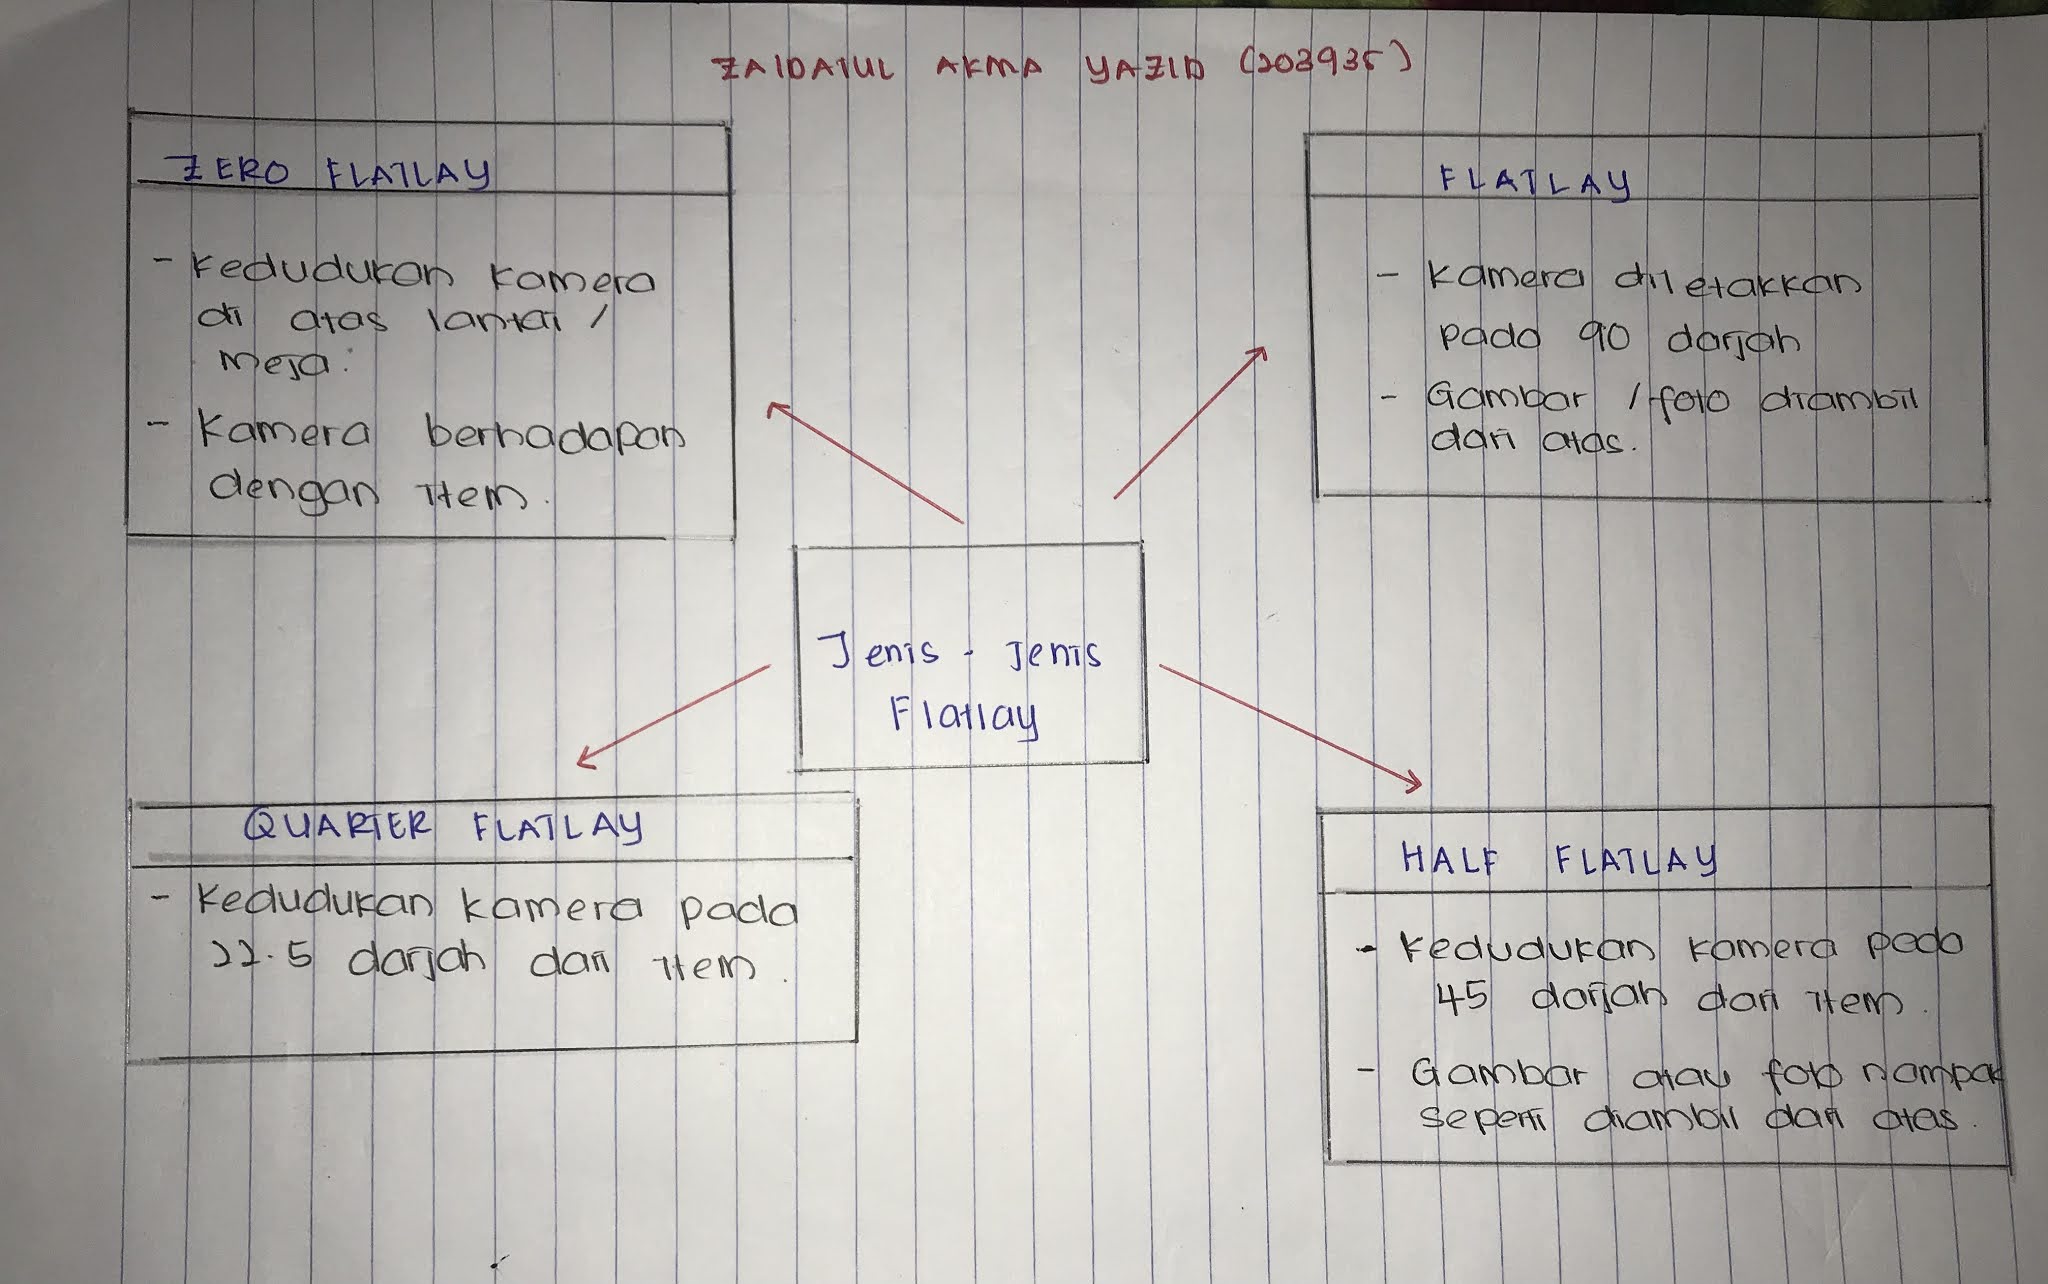 ZAIDATUL AKMA YAZID (203935)
ZERO FLATLAY
- Kedudukan kamera
di atas lantai /
meja.
- Kamera berhadapan
dengan item.
FLATLAY
- Kamera diletakkan
pada 90 darjah
- Gambar / foto diambil
dari atas.
Jenis - Jenis
Flatlay
QUARTER FLATLAY
- Kedudukan kamera pada
22.5 darjah dari item.
HALF FLATLAY
- Kedudukan kamera pada
45 darjah dari item.
- Gambar atau foto nampak
seperti diambil dari atas.